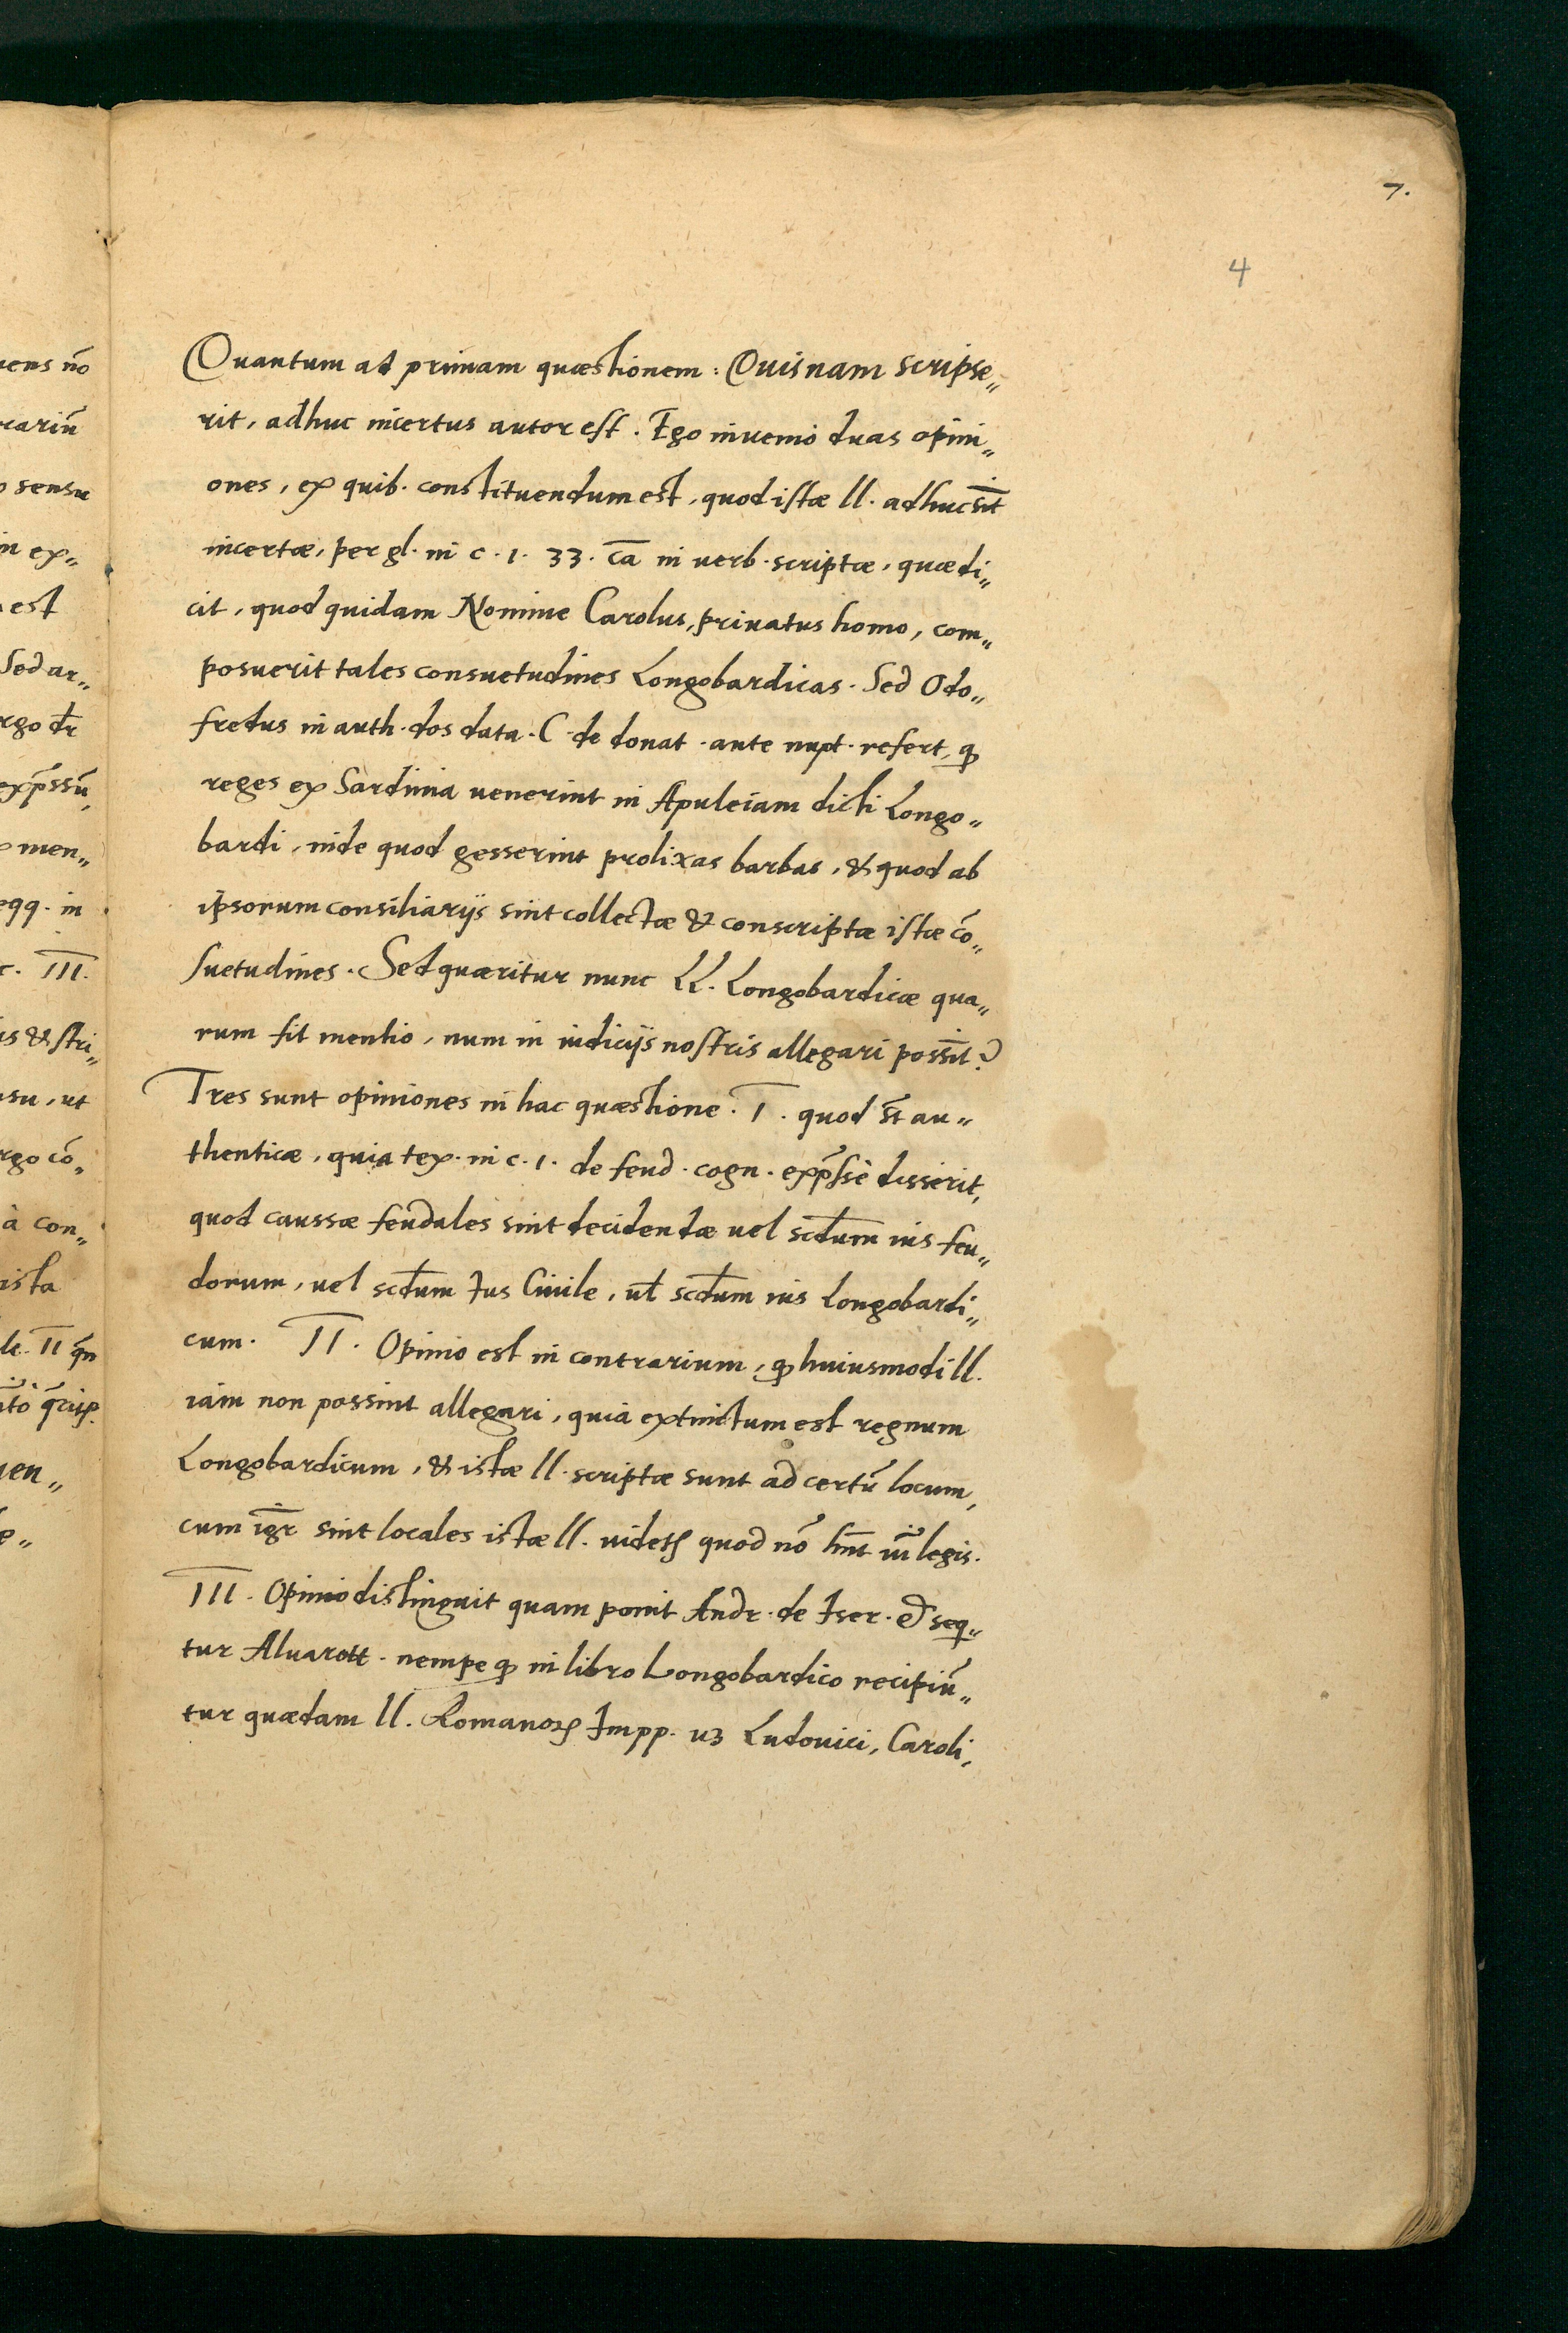 7.
4
Quantum ad primam quæstionem: Quisnam scripse„
rit, adhuc incertus autor est. Ego invenio duas opini„
ones, ex quib. constituendum est, quod istæ ll. adhuc sīt
incertæ, per gl. in c. 1. 33. ca̅ in verb. scriptæ, quæ di„
cit, quod quidam Nomine Carolus, priuatus homo, com„
posuerit tales consuetudines Longobardicas. Sed Odo„
fredus in auth. dos data. C. de donat. ante nupt. refert, ꝙ
reges ex Sardinia uenerint in Apuleiam dicti Longo„
bardi, inde quod gesserint prolixas barbas, & quod ab
ipsorum consiliarijs sint collectæ & conscriptæ istæ cō„
suetudines. Sed quæritur nunc LL. Longobardicæ qua„
rum fit mentio, num in iudicijs nostris allegari possīt?
Tres sunt opiniones in hac quæstione. I. quod st̄ au„
thenticæ, quia tex. in c. 1. de feud. cogn. exp̄ssè disserit,
quod caussæ feudales sint decidendæ uel scd̄um ius feu„
dorum, uel scd̄um Ius Ciuile, ul̄ scd̄um ius Longobardi„
cum. II. Opinio est in contrarium, ꝙ huiusmodi ll.
iam non possint allegari, quia extinctum est regnum
Longobardicum, & istæ ll. scriptæ sunt ad certū locum,
cum igr̄ sint locales istæ ll. uidetꝭ quod nō hn̄t uim̄ legis.
III. Opinio distinguit quam ponit Andr. de Iser. & seq„
tur Aluarott. nempe ꝙ in libro Longobardico recipiū„
tur quædam ll. Romanoꝝ Impp. uꝫ Ludouici, Caroli,